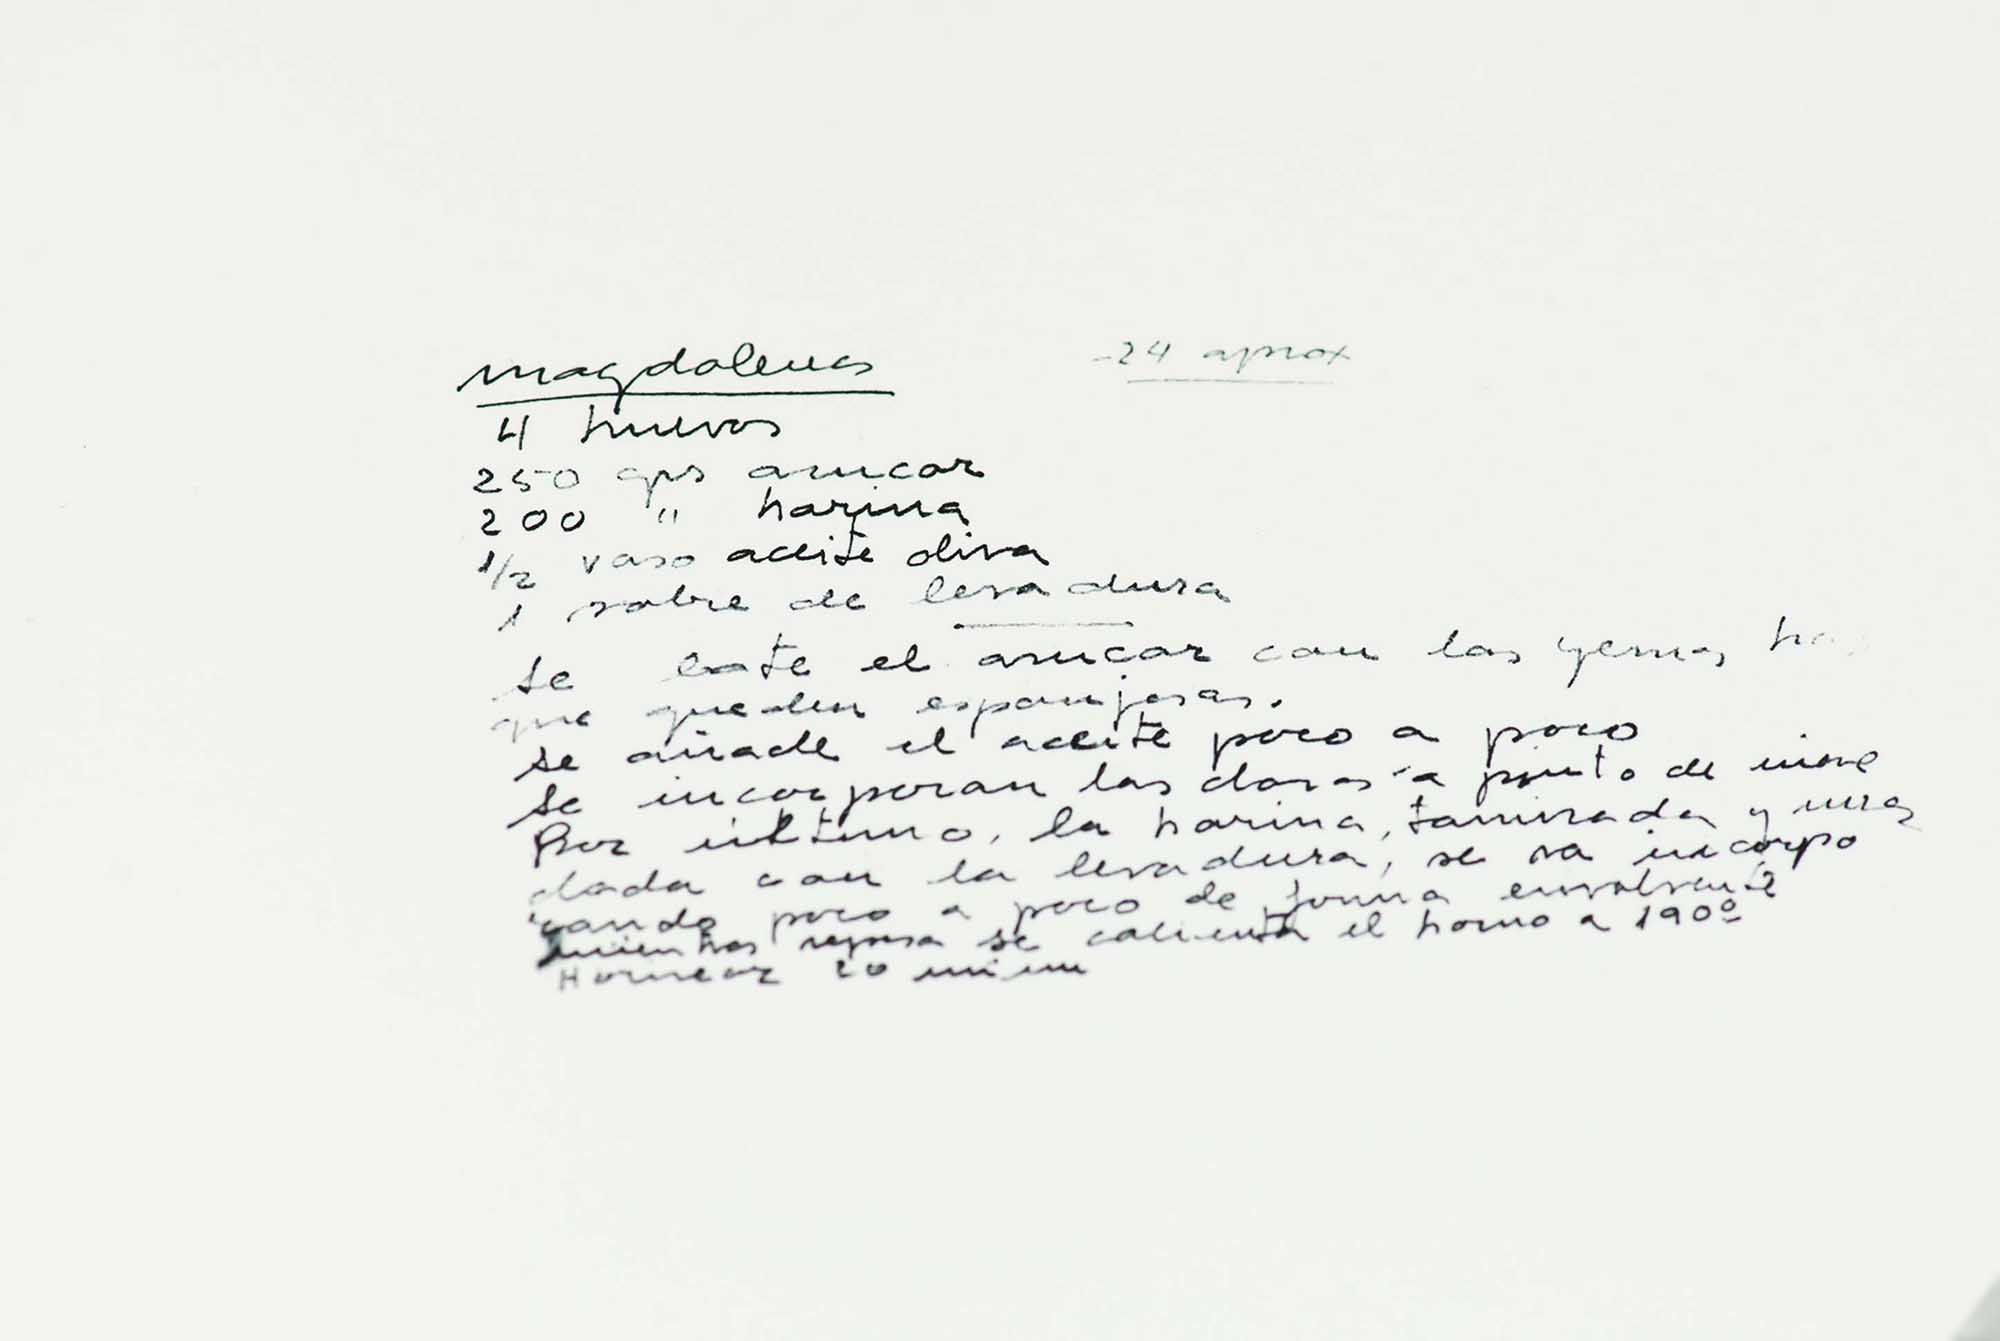 magdalenas -24 aprox
4 huevos
250 grs azucar
200 " harina
1/2 vaso aceite oliva
1 sobre de levadura
se bate el azucar con las yemas ha
que queden esponjosas.
se añade el aceite poco a poco
se incorporan las claras a punto de nieve
Por ultimo, la harina, tamizada y mez
clada con la levadura, se va incorpo
rando poco a poco de forma envolvente
mientras reposa se calienta el horno a 190º
Hornear 20 minu